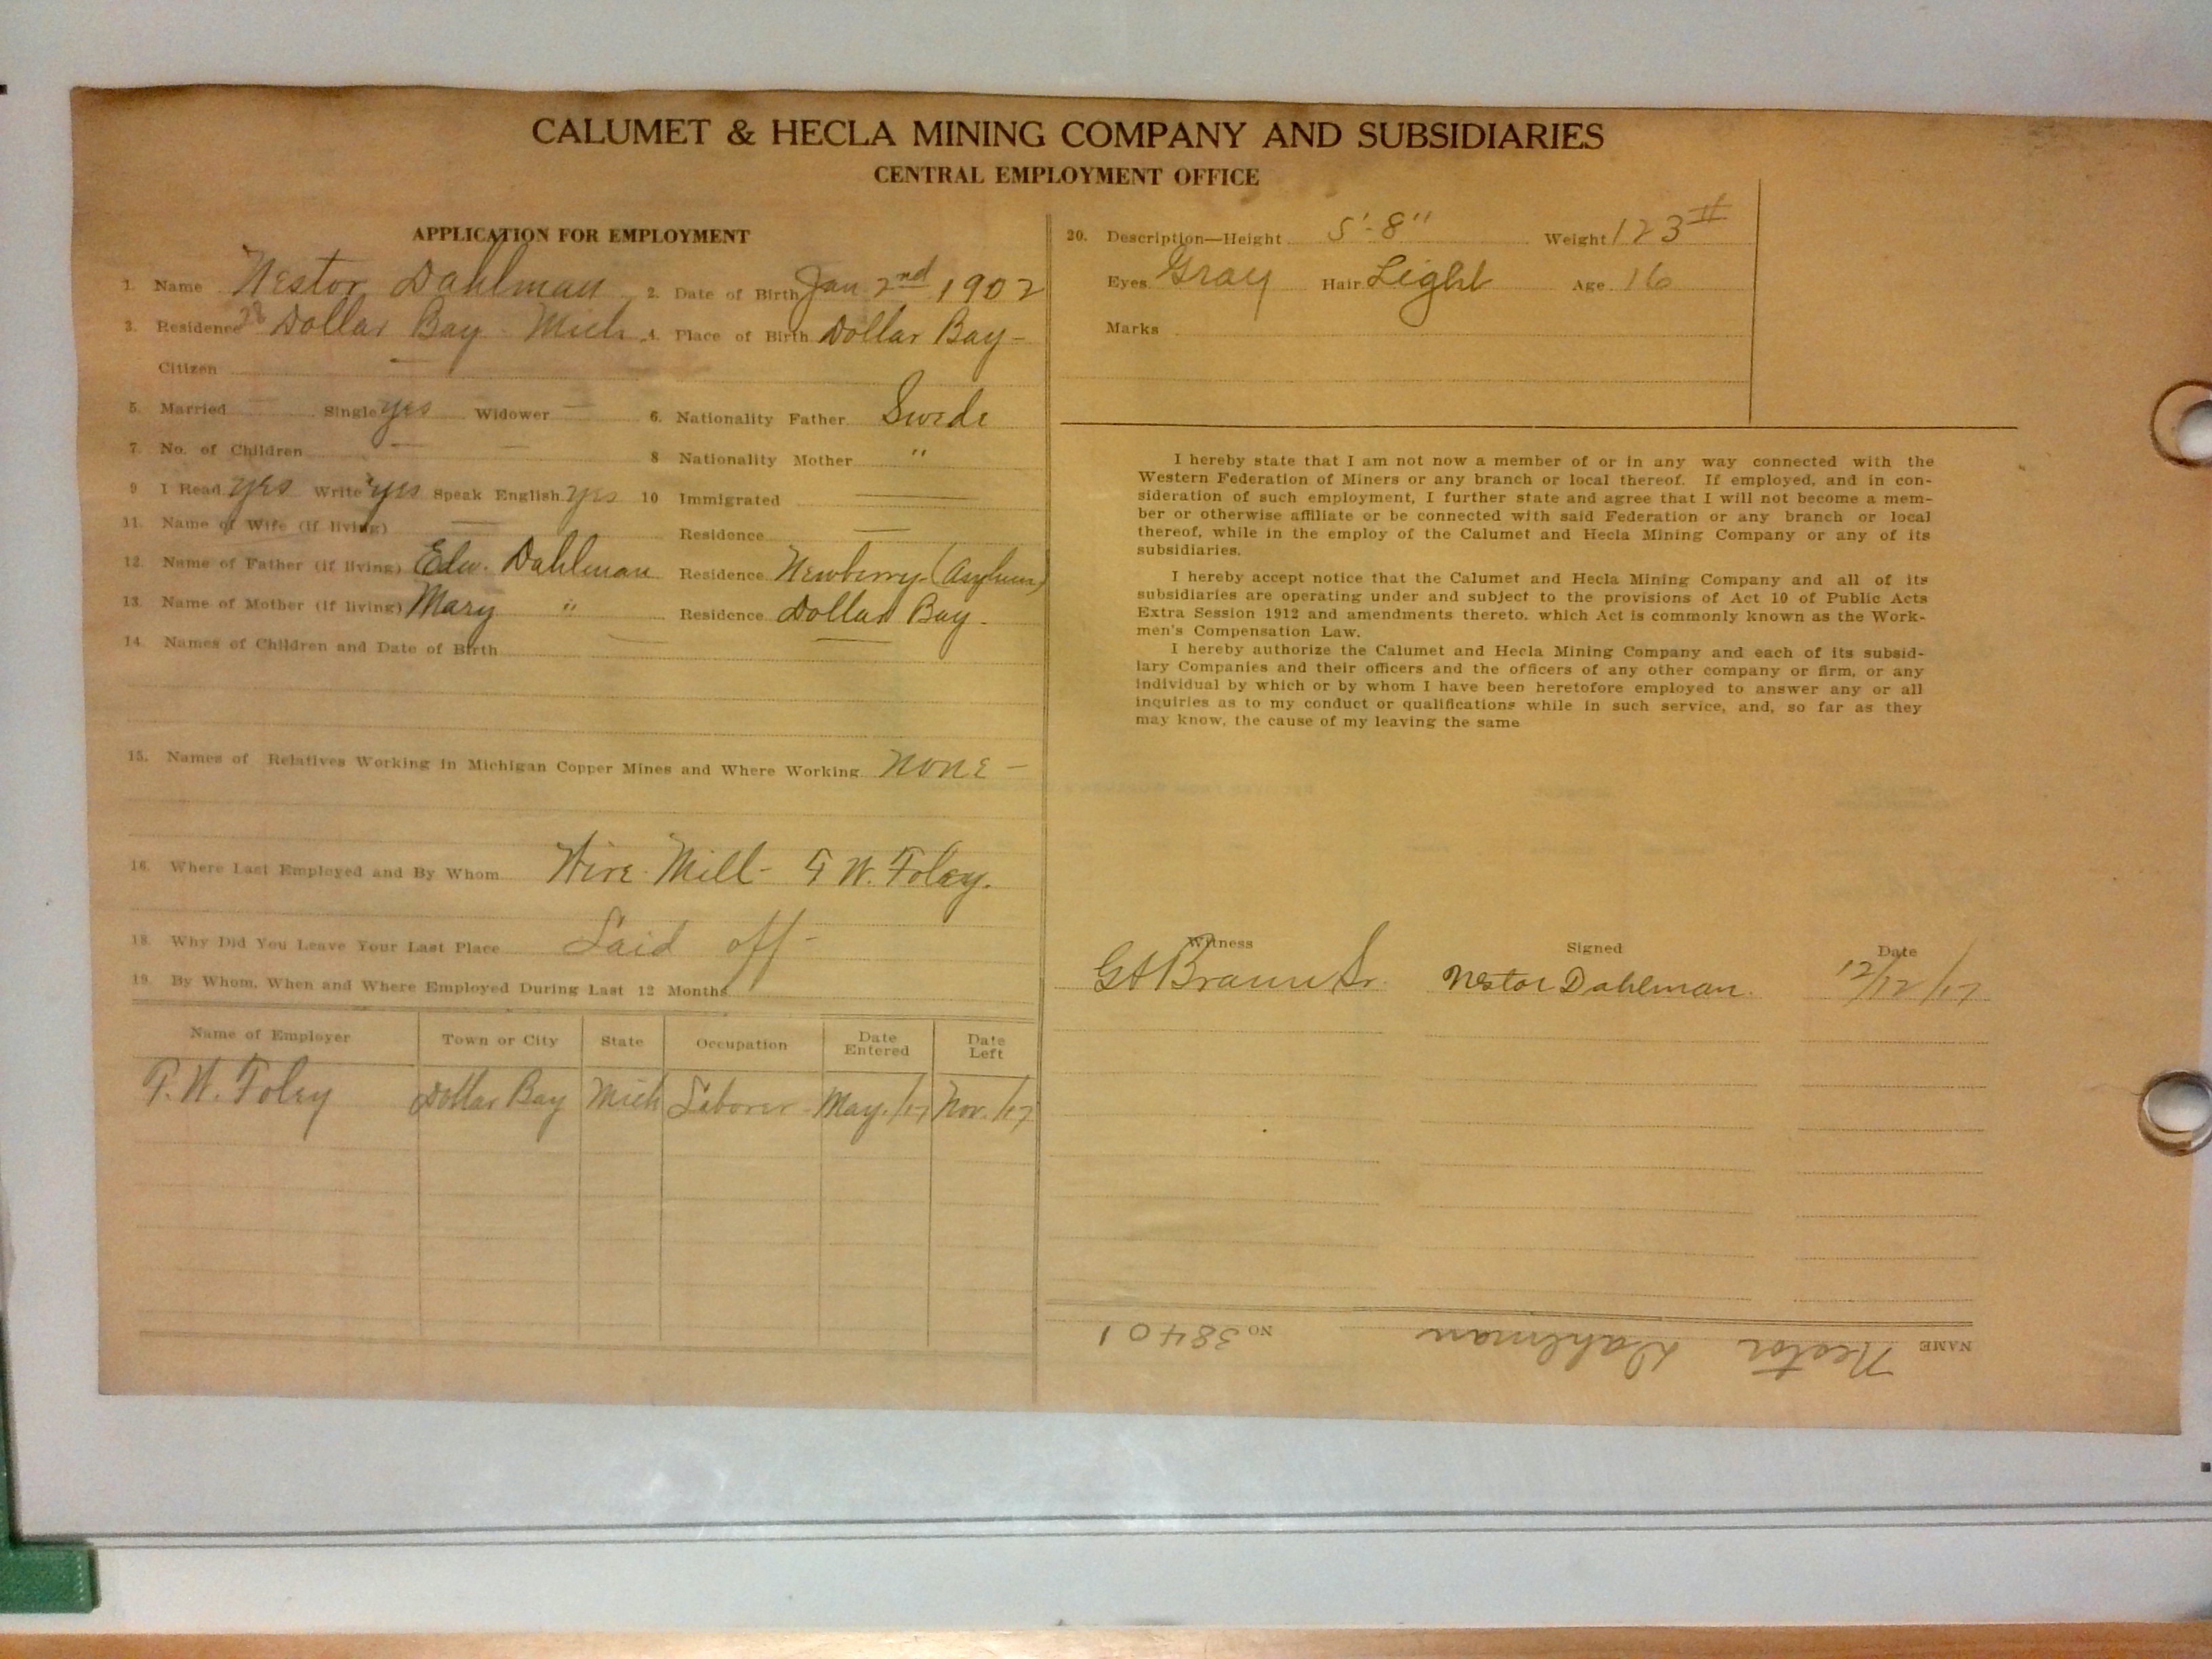 CALUMET & HECLA MINING COMPANY AND SUBSIDIARIES
CENTRAL EMPLOYMENT OFFICE
APPLICATION FOR EMPLOYMENT
1. Name Nestor Dahlman 2. Date of Birth Jan 2nd 1902
3. Residence 28 Dollar Bay Mich 4. Place of Birth Dollar Bay -
Citizen —
5. Married — Single yes Widower —
6. Nationality Father Swede
7. No. of Children — —
8 Nationality Mother "
9 I Read yes Write yes Speak English yes 10 Immigrated —
11. Name of Wife (if living) — Residence —
12. Name of Father (if living) Edw. Dahlman Residence Newberry (Asylum)
13. Name of Mother (if living) Mary " Residence Dollar Bay -
14. Names of Children and Date of Birth — —
15. Names of Relatives Working in Michigan Copper Mines and Where Working None -
16. Where Last Employed and By Whom Wire Mill - F W. Foley.
18. Why Did You Leave Your Last Place Laid off -
19. By Whom, When and Where Employed During Last 12 Months
Name of Employer Town or City State Occupation Date Entered Date Left
F. W. Foley Dollar Bay Mich Laborer - May. /17 Nov. /17
20. Description—Height 5'-8" Weight 123#
Eyes Gray Hair Light Age 16
Marks
I hereby state that I am not now a member of or in any way connected with the
Western Federation of Miners or any branch or local thereof. If employed, and in con-
sideration of such employment, I further state and agree that I will not become a mem-
ber or otherwise affiliate or be connected with said Federation or any branch or local
thereof, while in the employ of the Calumet and Hecla Mining Company or any of its
subsidiaries.
I hereby accept notice that the Calumet and Hecla Mining Company and all of its
subsidiaries are operating under and subject to the provisions of Act 10 of Public Acts
Extra Session 1912 and amendments thereto, which Act is commonly known as the Work-
men's Compensation Law.
I hereby authorize the Calumet and Hecla Mining Company and each of its subsid-
iary Companies and their officers and the officers of any other company or firm, or any
individual by which or by whom I have been heretofore employed to answer any or all
inquiries as to my conduct or qualifications while in such service, and, so far as they
may know, the cause of my leaving the same
Witness Signed Date
Nestor Dahlman. 12/12/17
NAME Nestor Dahlman NO 38401